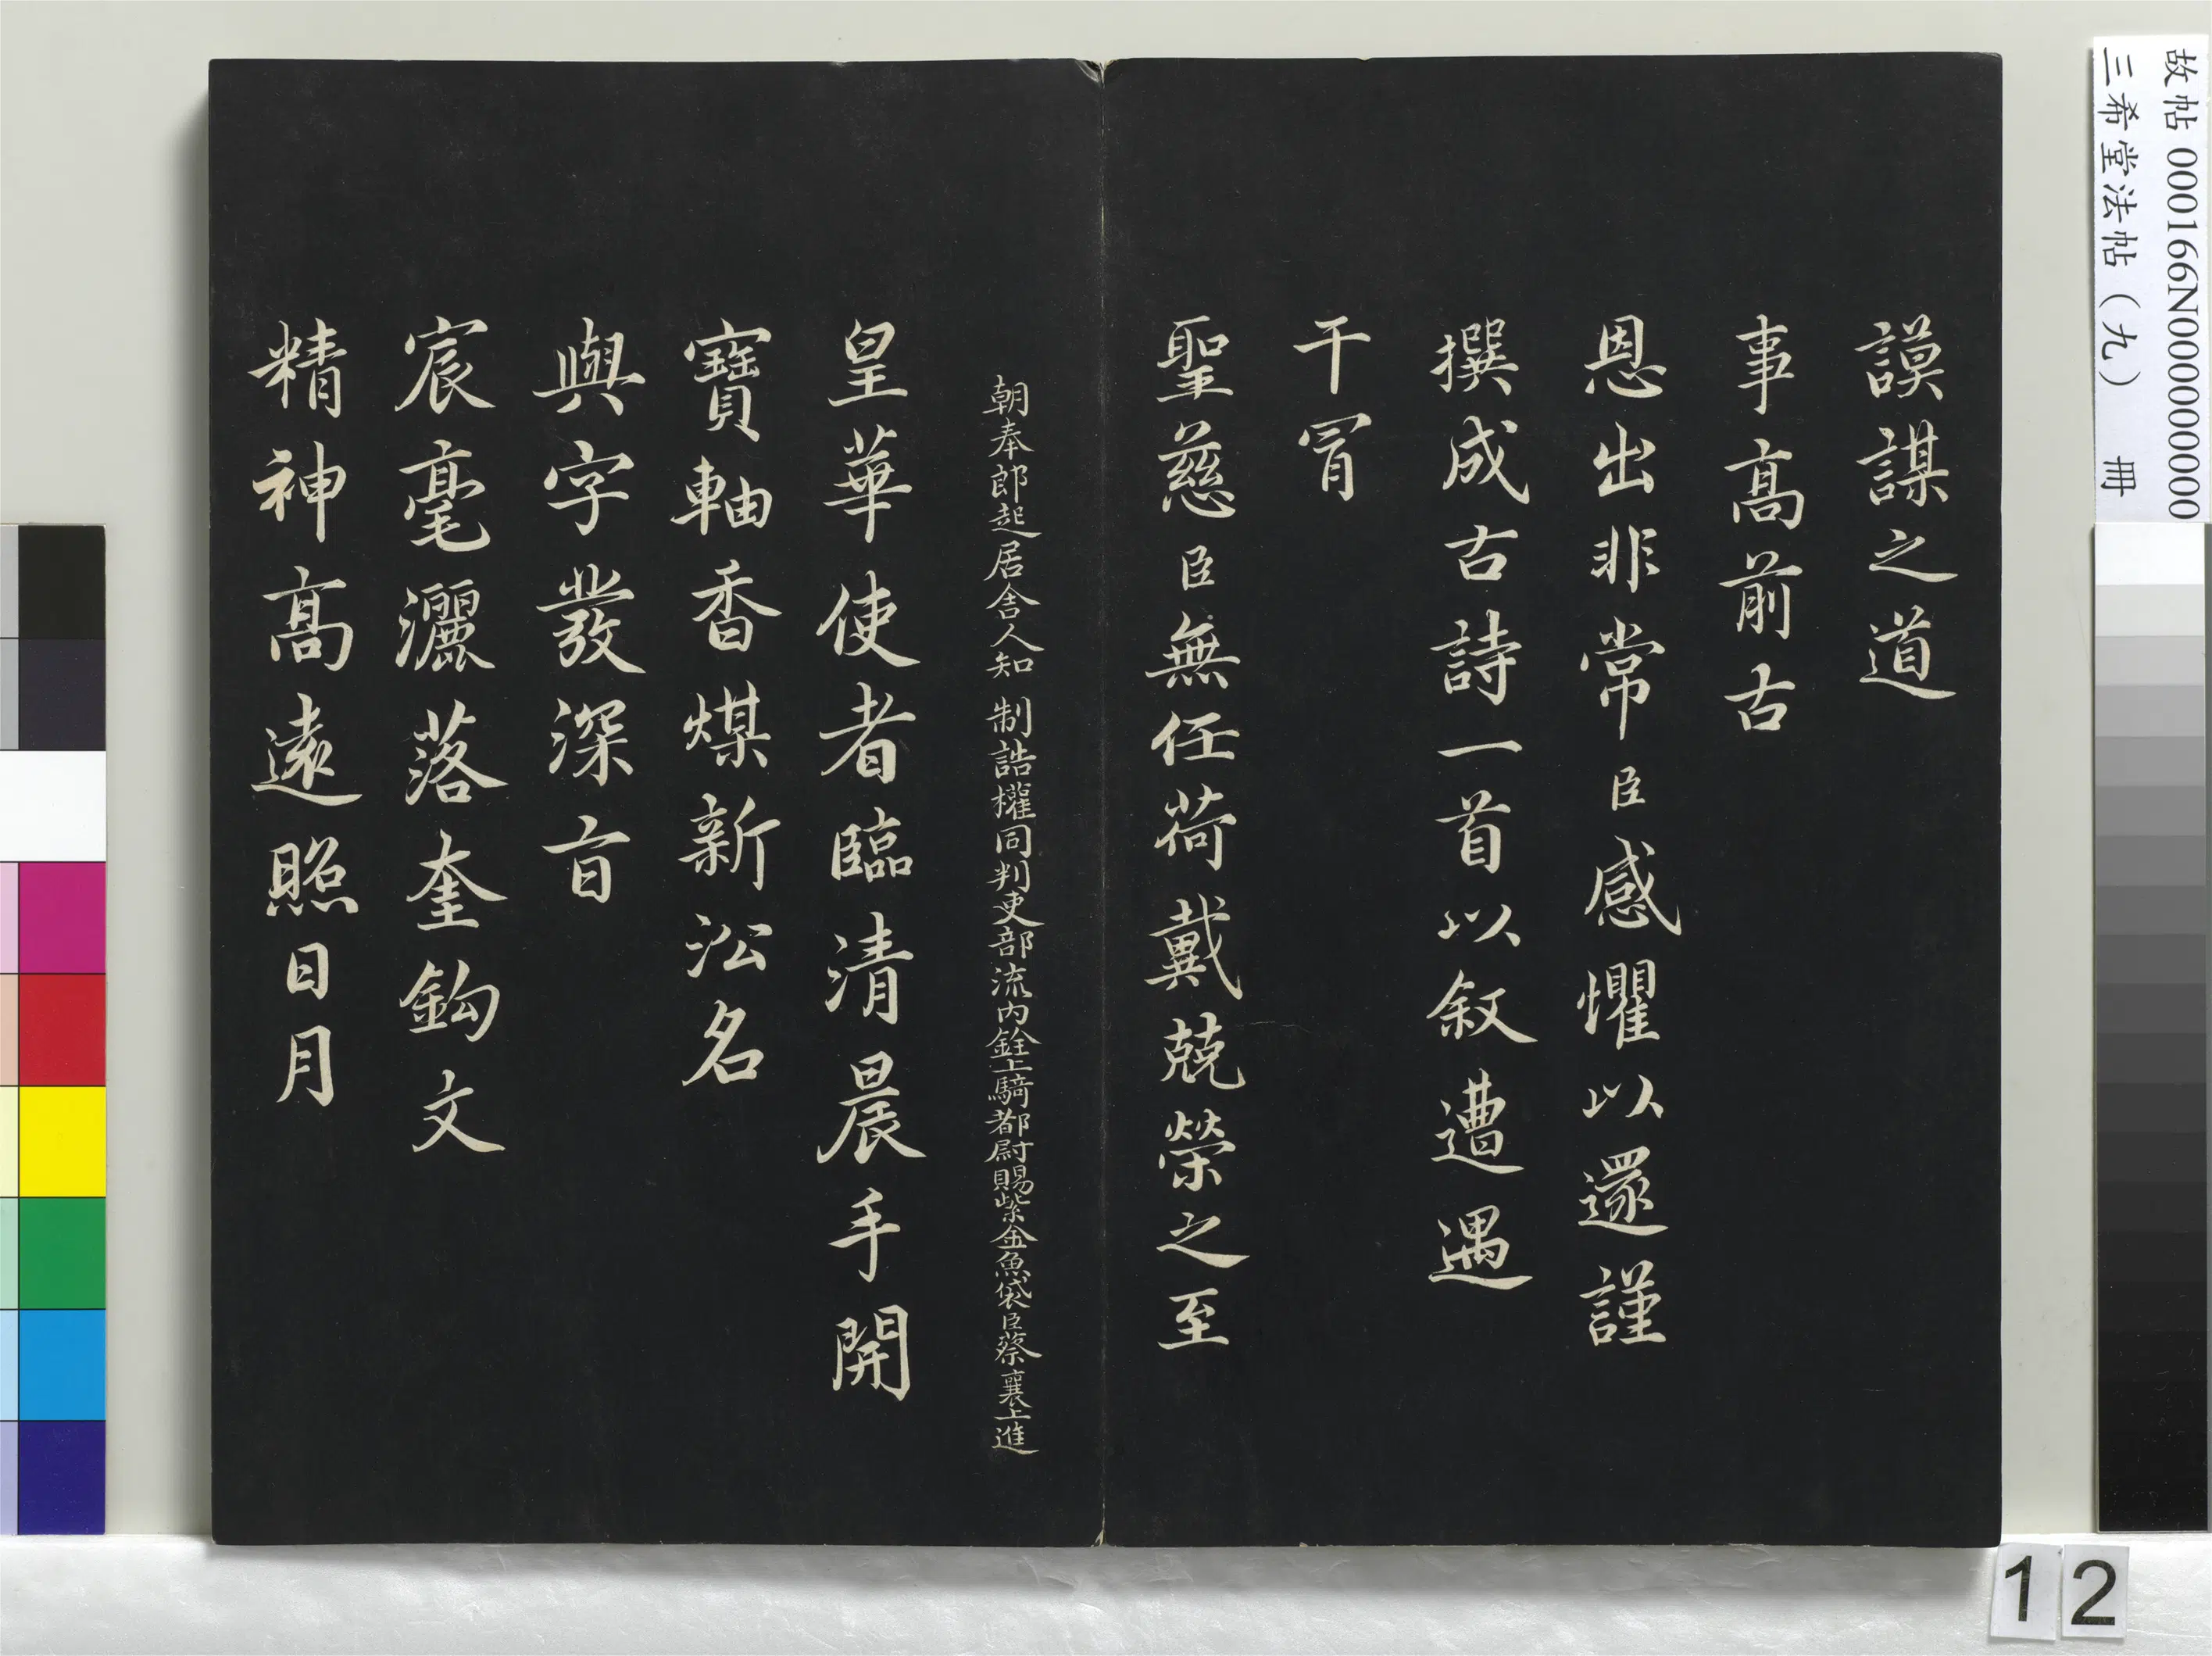 謨謀之道
事高前古
恩出非常臣感懼以還謹
撰成古詩一首以叙遭遇
干冒
聖慈臣無任荷戴兢榮之至
朝奉郎起居舍人知 制誥權同判吏部流內銓上騎都尉賜紫金魚袋臣蔡襄上進
皇華使者臨清晨手開
寶軸香煤新沇名
與字發深旨
宸毫灑落奎鈎文
精神高遠照日月
故帖 000166N000000000
三希堂法帖（九） 冊
12